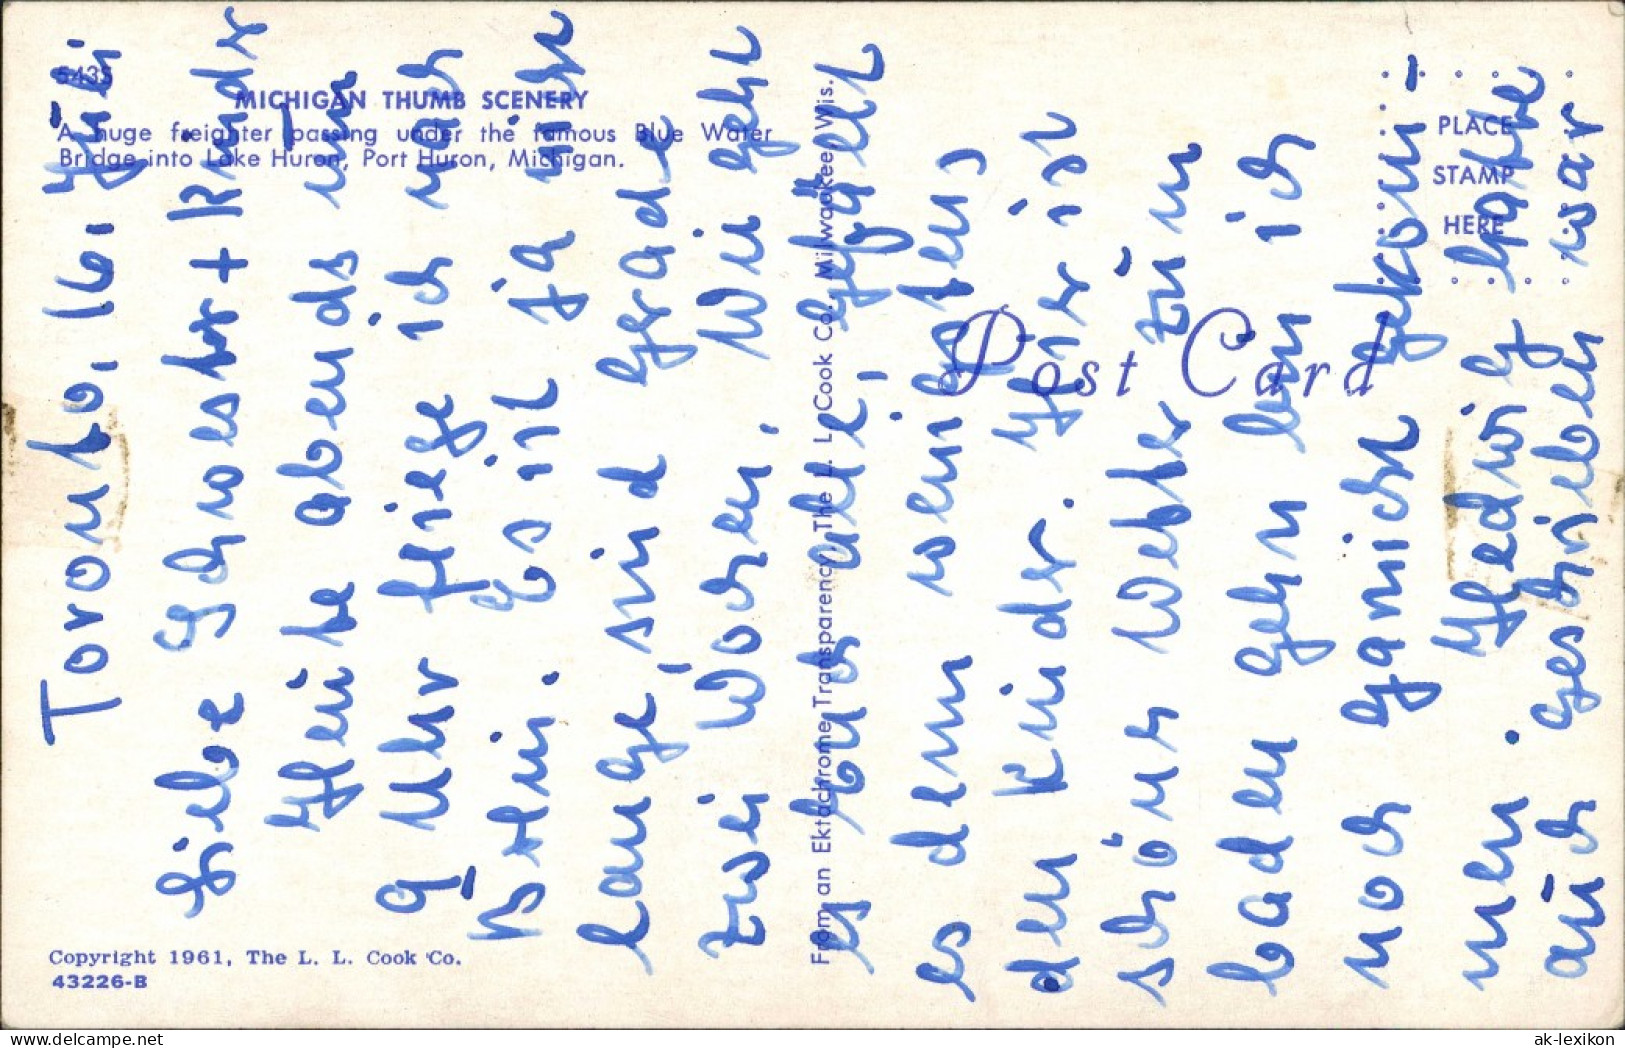 5435
MICHIGAN THUMB SCENERY
A huge freighter passing under the famous Blue Water
Bridge into Lake Huron, Port Huron, Michigan.
Post Card
PLACE
STAMP
HERE
From an Ektachrome Transparency, The L. L. Cook Co., Milwaukee, Wis.
Copyright 1961, The L. L. Cook Co.
43226-B
Toronto, 16. Juli
Liebe Schwester + Kinder
Heute abends um
9 Uhr fliege ich nach
Berlin. Es ist ja nicht
lange, sind grade
zwei Wochen. Wie geht
es Euch alle, gefällt
es denn wenigstens
den Kinder. Hier ist
schönes Wetter zum
baden gehn bin ich
noch garnicht gekom-
men. Hedwig hatte
auch geschrieben war
ak-lexikon